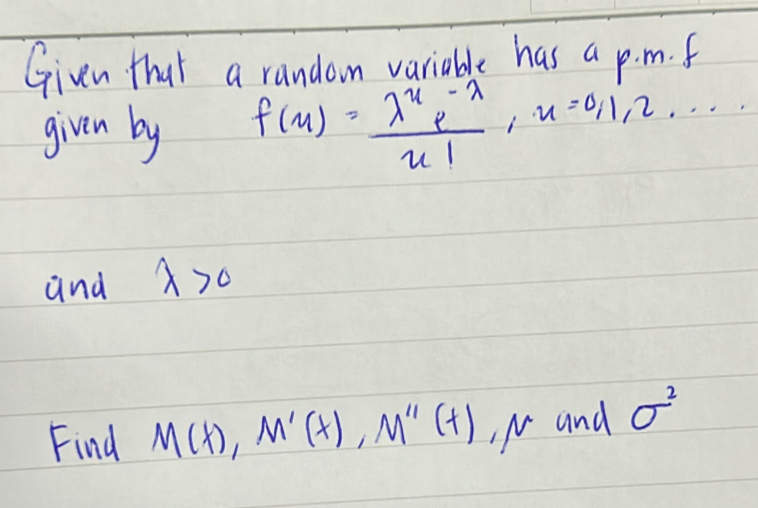 Given that a random variable has a p.m.f
given by f(x) = λ^x e^-λ / x! , x = 0,1,2 ....
and λ>0
Find M(t), M'(t), M"(t), μ and σ²